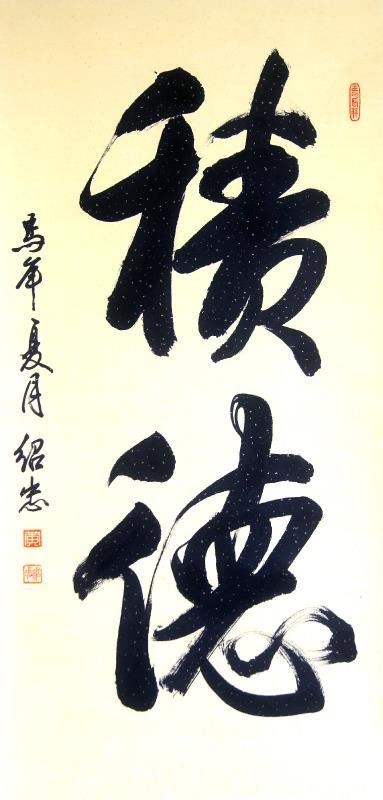 積德
馬年夏月 绍忠